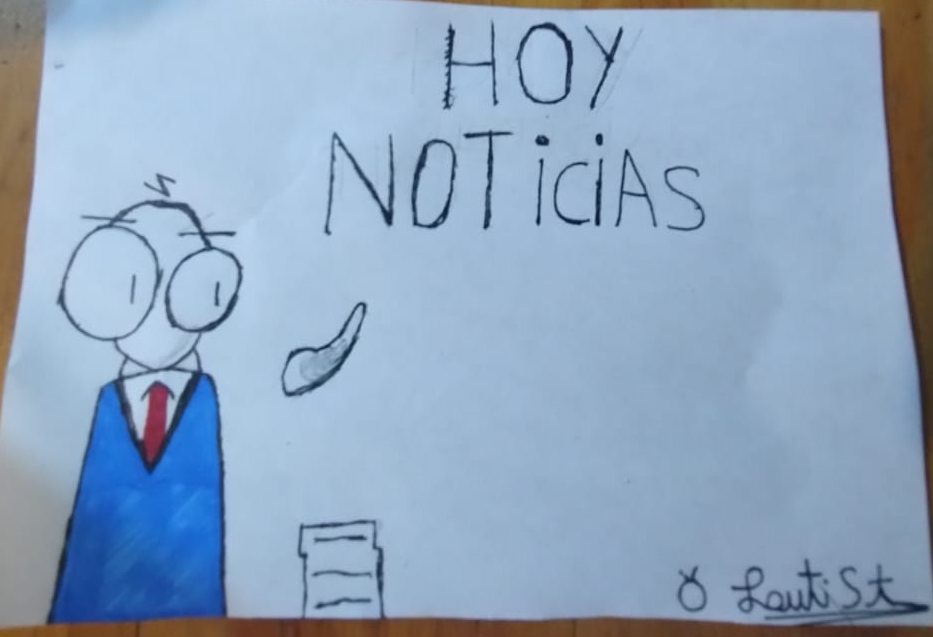 HOY
NOTiciAS
LautiSt